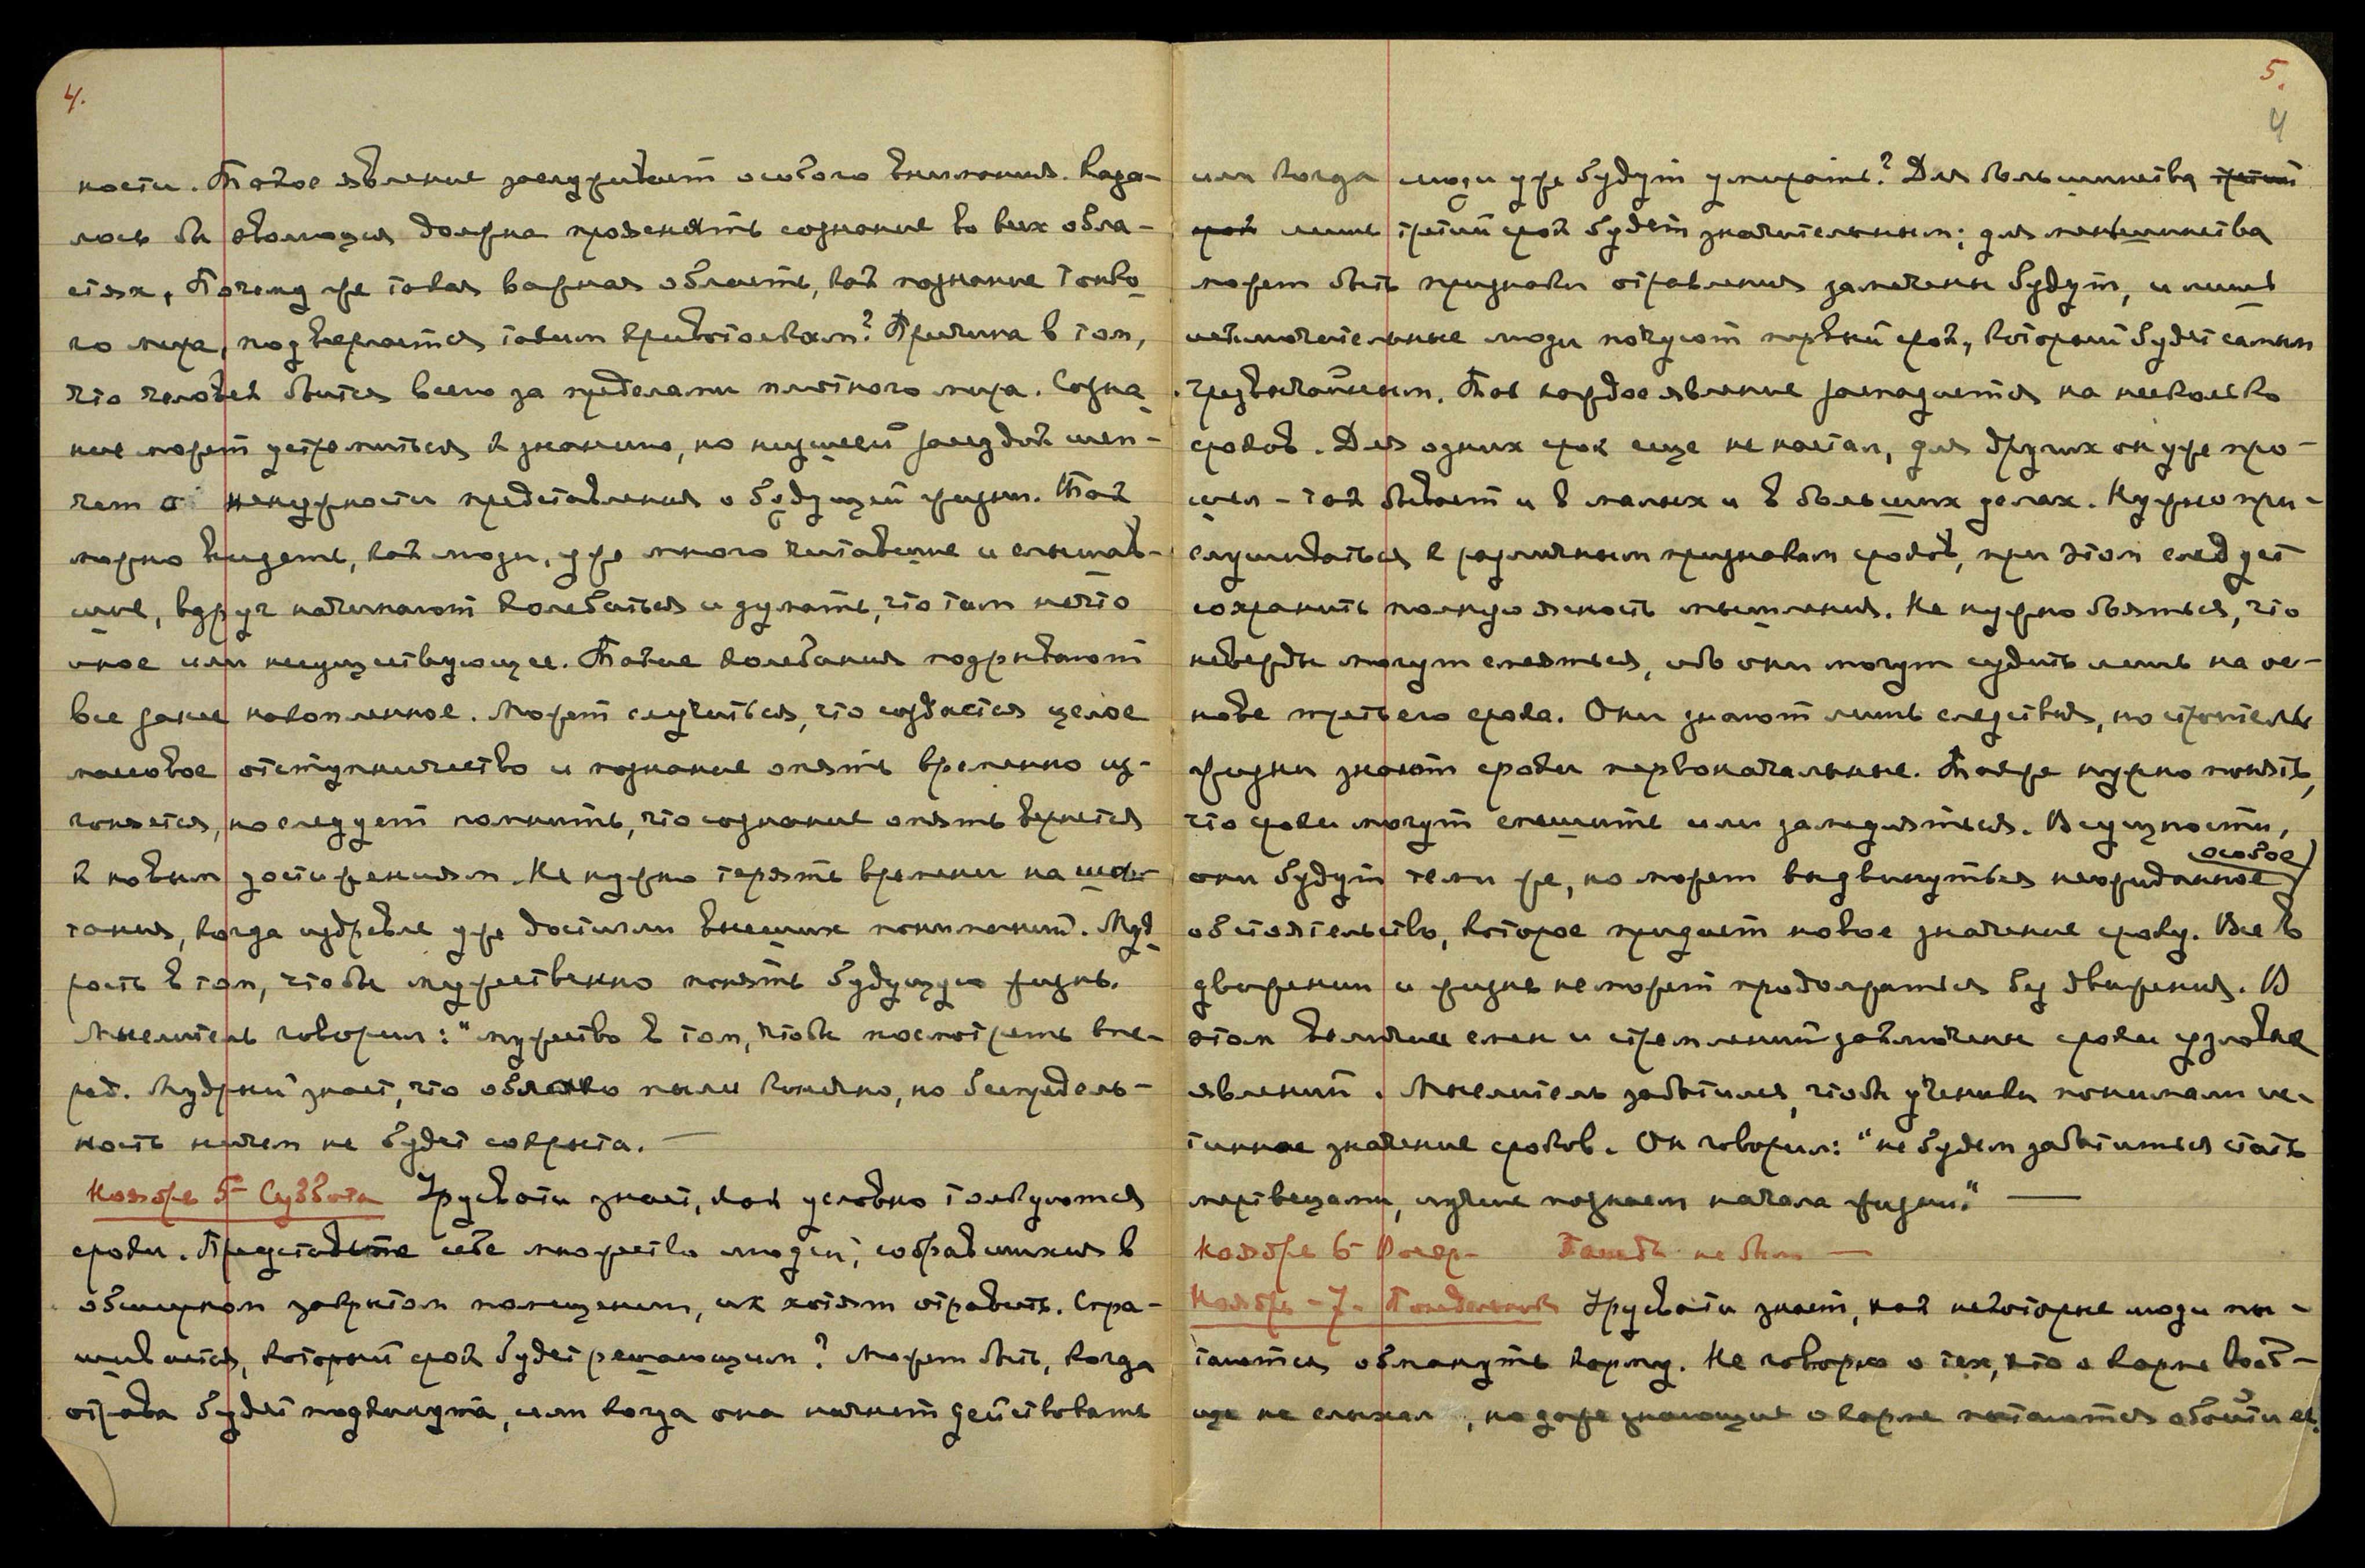 4.
ности. Такое явление заслуживает особого внимания. Каза-
лось бы эволюция должна прояснять сознание во всех обла-
стях. Почему же такая важная область, как познание Тонко
го мира, подвергается таким кривотолкам? Причина в том,
что человек боится всего за пределами плотного мира. Созна
ние может устремиться к знанию, но низший рассудок шеп-
чет о ненужности представления о будущей жизни. Так
можно видеть, как люди, уже много читавшие и слышав-
шие, вдруг начинают колебаться и думать, что там нечто
иное или несуществующее. Такие колебания подрывают
все ранее накопленное. Может случиться, что создастся целое
массовое отступничество и познание опять временно из-
гоняется, но следует помнить, что сознание опять вернется
к новым достижениям. Не нужно терять времени на шa-
тания, когда издревле уже достигли высших пониманий. Муд
рость в том, чтобы мужественно понять будущую жизнь.
Мыслитель говорил: "мужество в том, чтобы посмотреть впе-
ред. Мудрый знает, что облако пыли конечно, но беспредель-
ность ничем не будет сокрыта. —
Ноябрь 5- Суббота Урусвати знает, как условно толкуются
сроки. Представьте себе множество людей, собравшихся в
обширном закрытом помещении, их хотят отравить. Спра-
шивается, который срок будет решающим? Может быть, когда
отрава будет подкинута, или когда она начнет действовать
5.
4
или когда люди уже будут умирать? Для большинства третий
срок лишь третий срок будет значительным; для меньшинства
может быть признаки отравления замечены будут, и лишь
исключительные люди почуют первый срок, который будет самым
чрезвычайным. Так каждое явление распадается на несколько
сроков. Для одних срок еще не настал, для других он уже про-
шел - так бывает и в малых и в больших делах. Нужно при-
слушиваться к различным признакам сроков, при этом следует
сохранить полную ясность мышления. Не нужно бояться, что
невежды могут смеяться, ибо они могут судить лишь на ос-
нове третьего срока. Они знают лишь следствия, но строители
жизни знают сроки первоначальные. Также нужно понять,
что сроки могут спешить или замедляться. В сущности,
особое
они будут теми же, но может выдвинуться неожиданное
обстоятельство, которое придает новое значение сроку. Все в
движении и жизнь не может продолжаться без движения. В
этом величие смен и стремлений заключены сроки узловые
явлений. Мыслитель заботился, чтобы ученики понимали ис-
тинное значение сроков. Он говорил: "не будем заботиться стать
мертвецами, лучше познаем начала жизни." —
Ноябрь 6- Воскр- Беседы не было —
Ноябрь -7- Понедельник Урусвати знает, как некоторые люди пы-
таются обмануть карму. Не говорю о тех, кто о карме вооб-
ще не слыхал, но даже знающие о карме пытаются обойти ее.